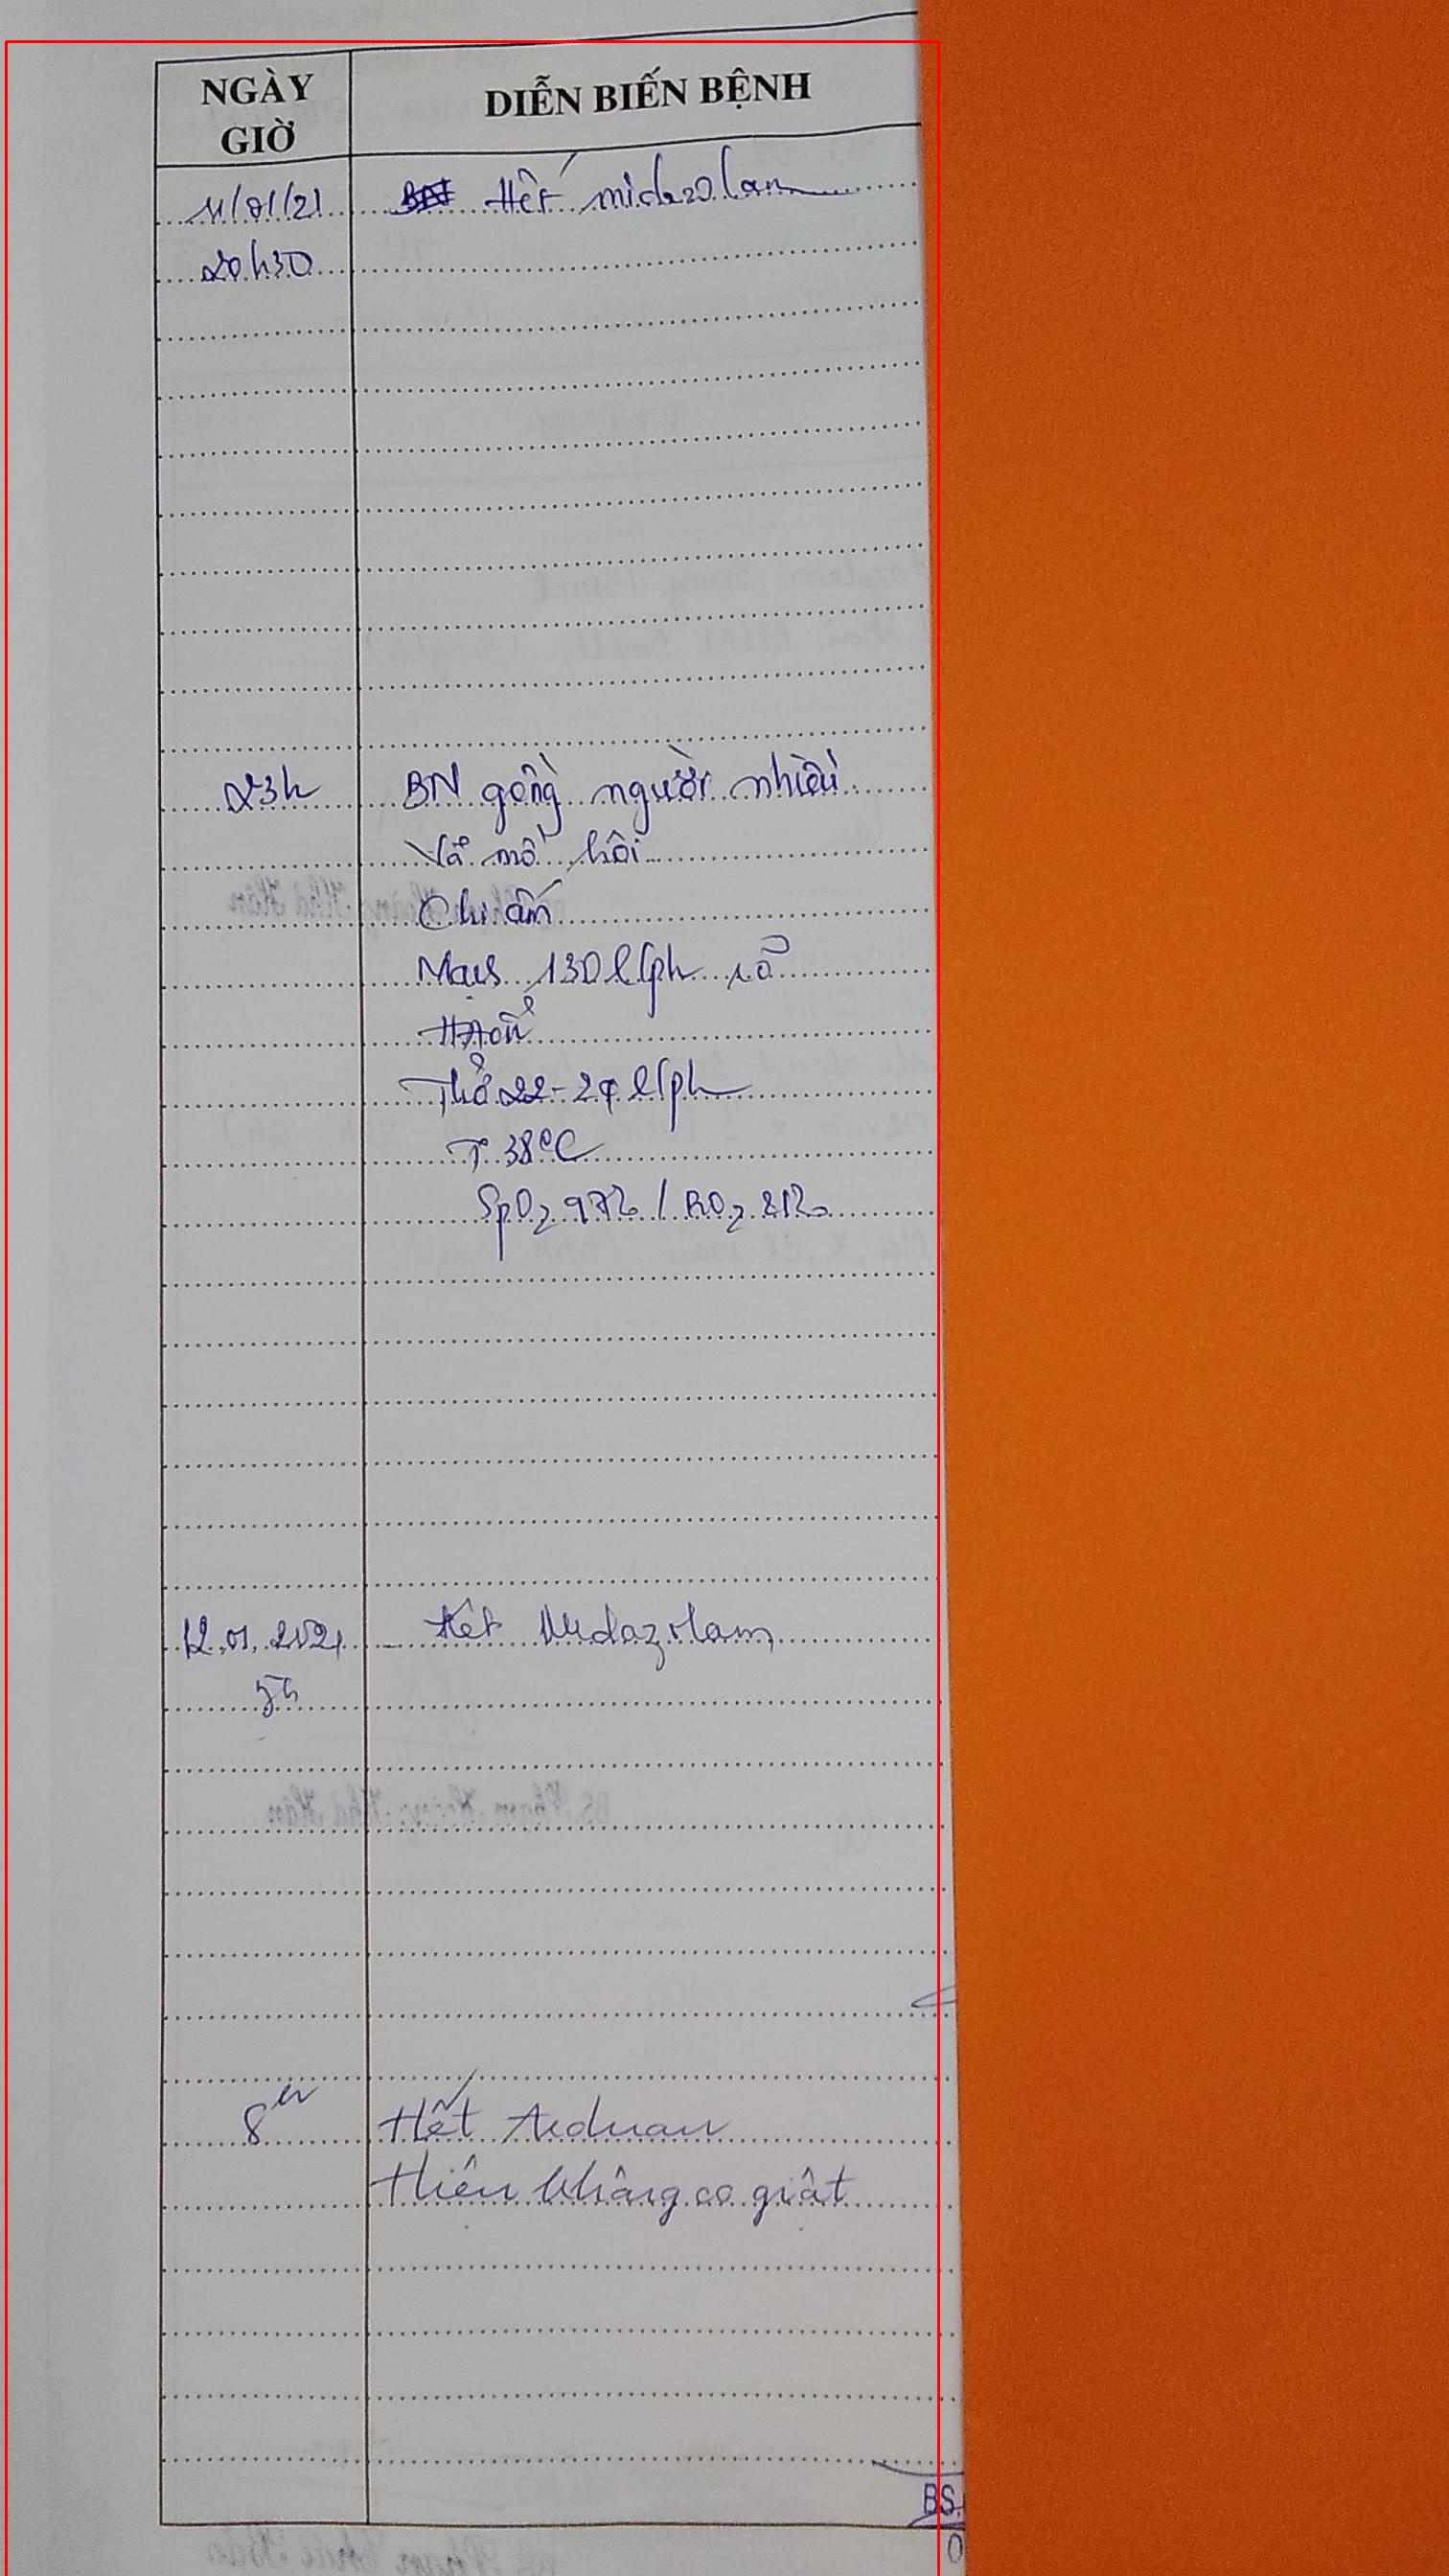 NGÀY GIỜ
DIỄN BIẾN BỆNH
11/01/21 Hết midazolam
20h30
23h BN gồng người nhiều
Vã mồ hôi
Chi ấm
Mạch 130 l/ph rõ
HA ổn
Thở 22-24 l/ph
T° 38°C
SpO2 97% / FiO2 21%
12.01.2021 Hết Midazolam
5h
8h Hết Arduan
Hiện không co giật
BS.